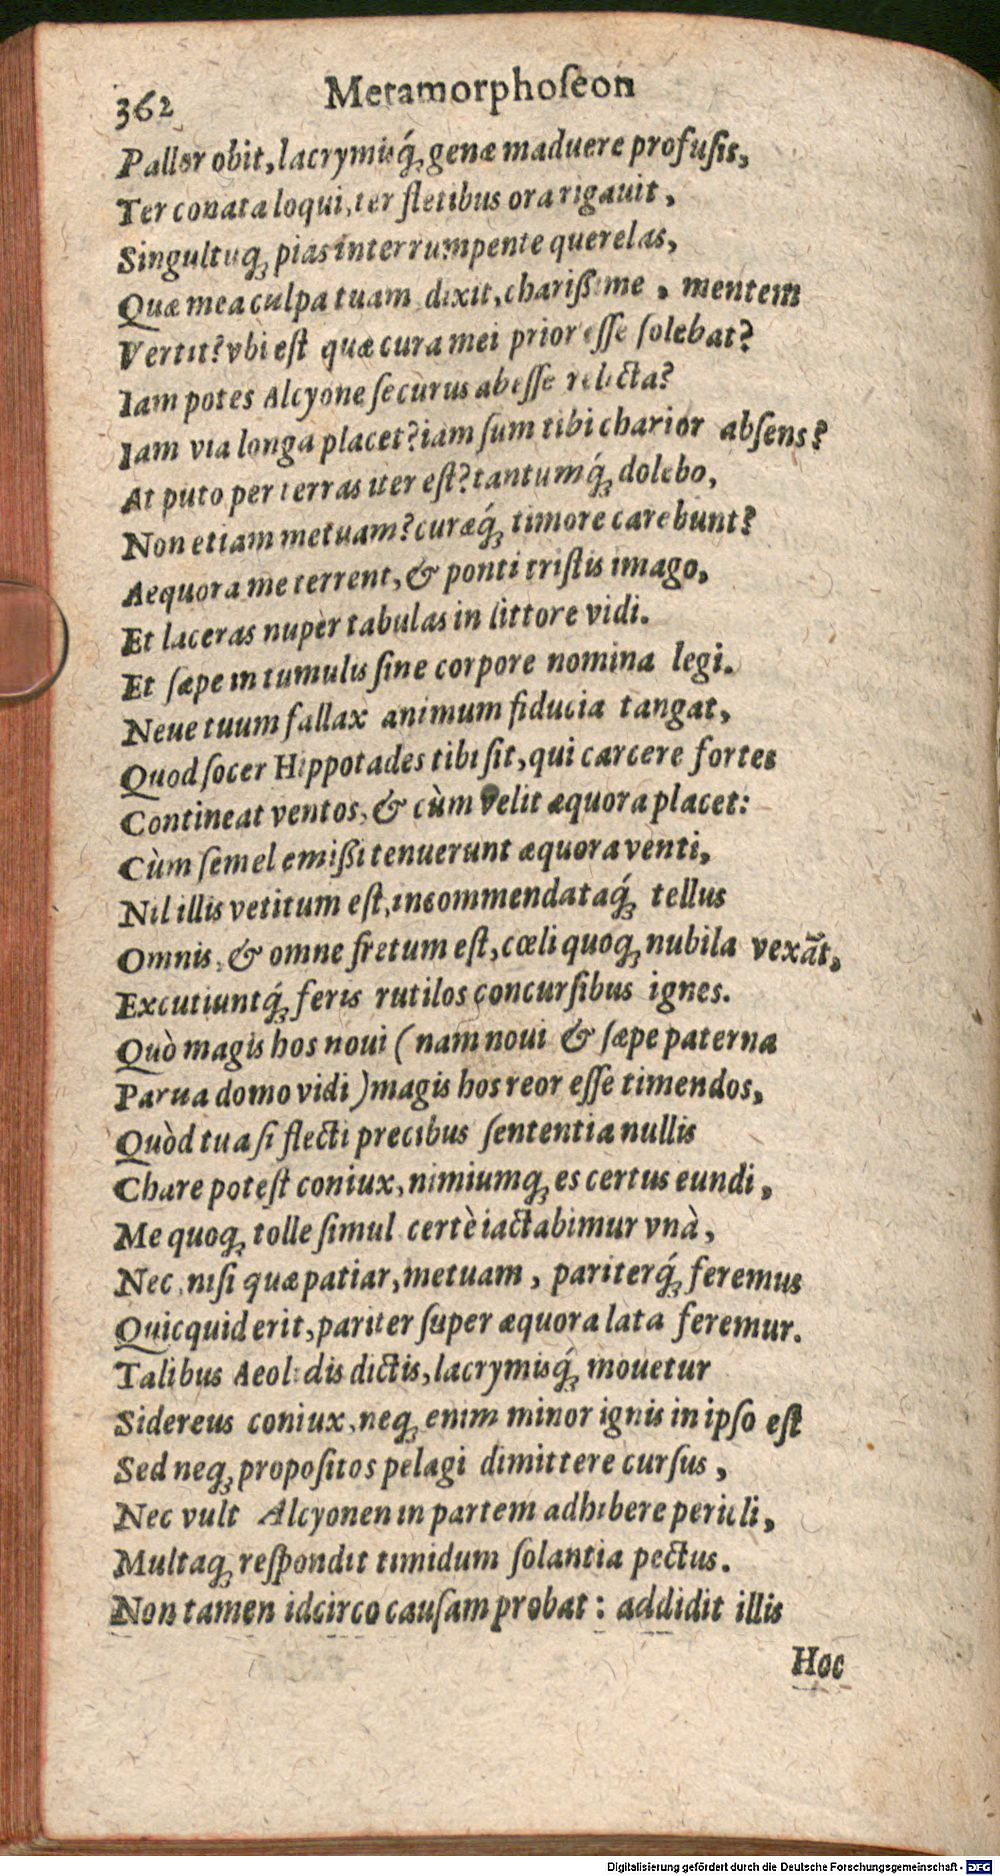 362 Metamorphoſeon
Pallor obit, lacrymisq́; genæ maduere profuſis,
Ter conata loqui, ter fletibus ora rigauit,
Singultuq; pias interrumpente querelas,
Quæ mea culpa tuam dixit, chariſsime, mentem
Vertit? vbi eſt quæ cura mei prior eſſe ſolebat?
Iam potes Alcyone ſecurus abeſſe relicta?
Iam via longa placet? iam ſum tibi charior abſens?
At puto per terras iter eſt? tantumq́; dolebo,
Non etiam metuam? curæq́; timore carebunt?
Aequora me terrent, & ponti triſtis imago,
Et laceras nuper tabulas in littore vidi.
Et ſæpe in tumulis ſine corpore nomina legi.
Neue tuum fallax animum fiducia tangat,
Quod ſocer Hippotades tibi ſit, qui carcere fortes
Contineat ventos, & cùm velit æquora placet:
Cùm ſemel emiſsi tenuerunt æquora venti,
Nil illis vetitum eſt, incommendataq́; tellus
Omnis, & omne fretum eſt, cœli quoq; nubila vexāt,
Excutiuntq́; feris rutilos concurſibus ignes.
Quò magis hos noui (nam noui & ſæpe paterna
Parua domo vidi) magis hos reor eſſe timendos,
Quòd tua ſi flecti precibus ſententia nullis
Chare poteſt coniux, nimiumq; es certus eundi,
Me quoq; tolle ſimul certè iactabimur vnà,
Nec, niſi quæ patiar, metuam, pariterq́; feremus
Quicquid erit, pariter ſuper æquora lata feremur.
Talibus Aeolidis dictis, lacrymisq́; mouetur
Sidereus coniux, neq; enim minor ignis in ipſo eſt
Sed neq; propoſitos pelagi dimittere curſus,
Nec vult Alcyonen in partem adhibere pericli,
Multaq; reſpondit timidum ſolantia pectus.
Non tamen idcirco cauſam probat: addidit illis
Hoc
Digitalisierung gefördert durch die Deutsche Forschungsgemeinschaft - DFG